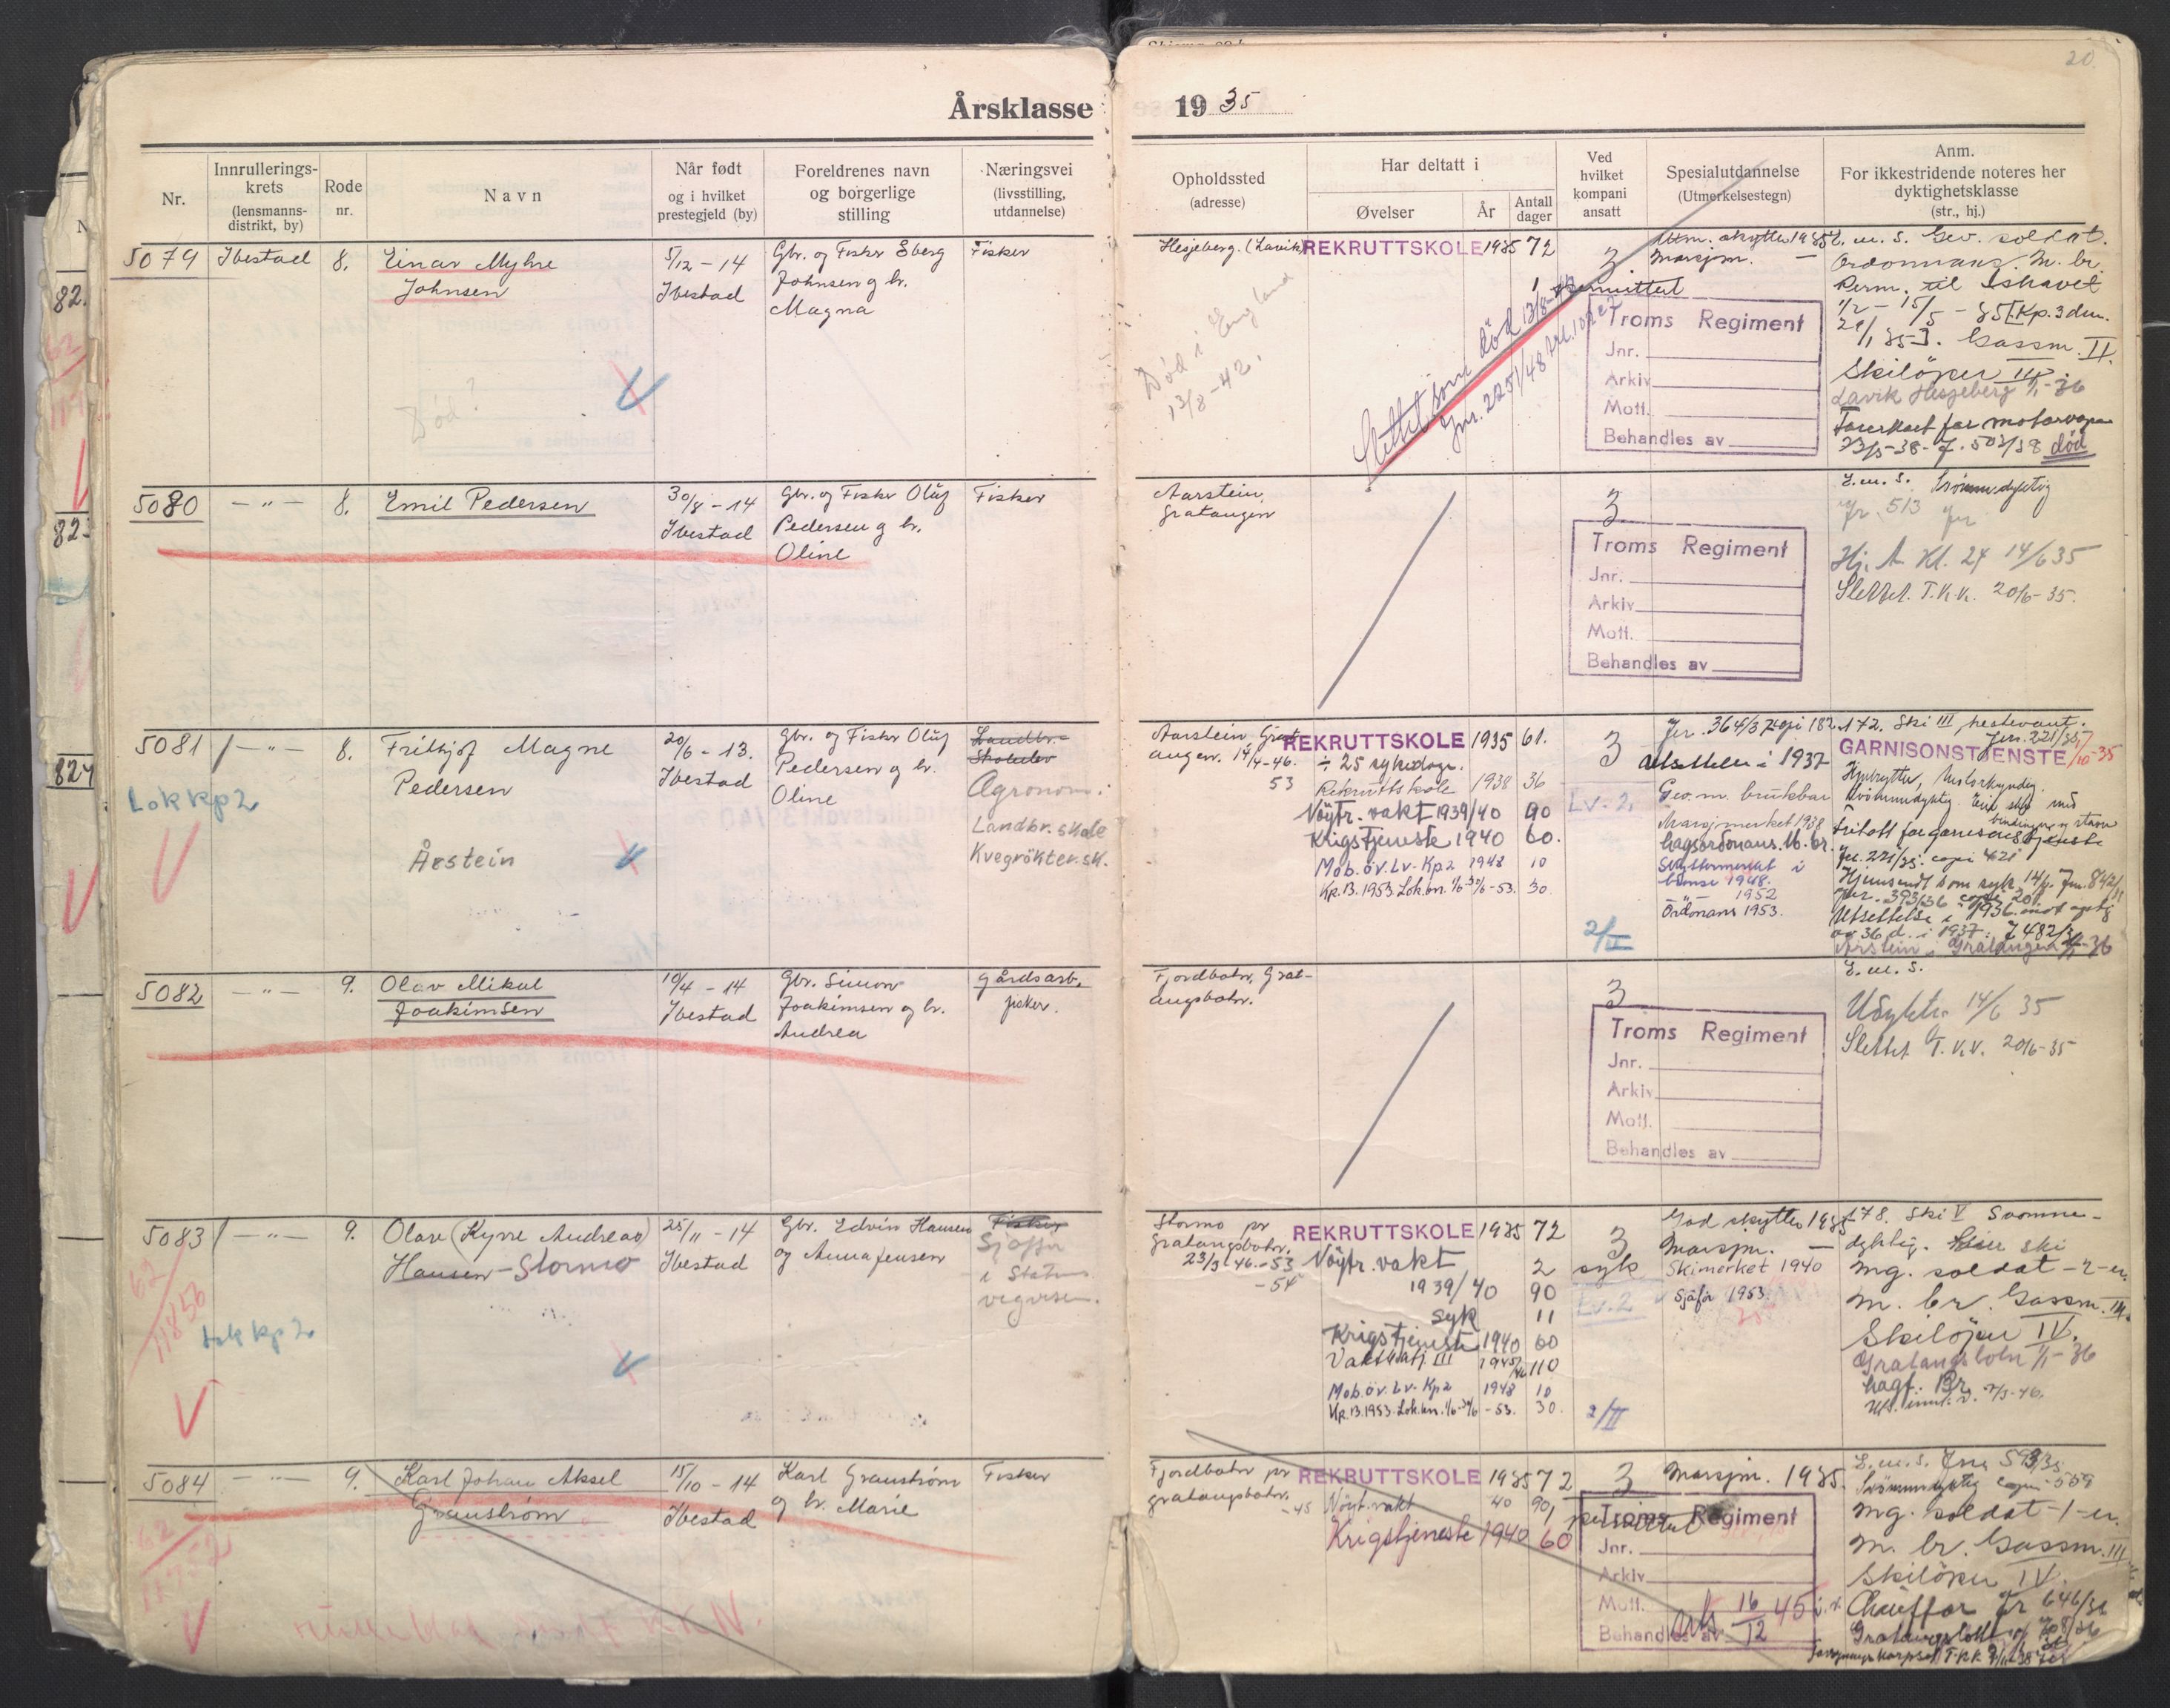 20
Årsklasse 1935
Nr.
Innrullerings-
krets
(lensmanns-
distrikt, by)
Rode
nr.
Navn
Når født
og i hvilket
prestegjeld (by)
Foreldrenes navn
og borgerlige
stilling
Næringsvei
(livsstilling,
utdannelse)
Opholdssted
(adresse)
Har deltatt i
Øvelser
År
Antall
dager
Ved
hvilket
kompani
ansatt
Spesialutdannelse
(Utmerkelsestegn)
Anm.
For ikkestridende noteres her
dyktighetsklasse
(str., hj.)
5079 Ibestad 8. Einar Myhre
Johnsen
5/12 - 14
Ibestad
Gbr. og Fisker Eberg
Johnsen og hr.
Magna
Fisker
Død?
Hesjeberg. (Lavik)
Død i England
13/8-42.
REKRUTTSKOLE 1935 72
3
Slettet som død 13/8-42
Jnr. 2251/48
Utm. skytter 1935
Marsjm. —
Troms Regiment
Jnr.
Arkiv
Mott.
Behandles av
E.m.s. Gev. soldat.
Ordonnans M. br.
Perm. til Ishavet
1/2 - 15/5 - 35
Gassm. II.
Skilöper III
Lavik Hesjeberg 1/1-36
Førerkort for motorvogn
503/38 død
5080 — " — 8. Emil Pedersen
30/8 - 14
Ibestad
Gbr. og Fisker Oluf
Pedersen og hr.
Oline
Fisker
Aarstein,
Gratangen
3
Troms Regiment
Jnr.
Arkiv
Mott.
Behandles av
E.m.s. Svömmedyktig
Jr. 513
Hj. A Kl. 24 14/6 35
Slettet. T.K.K. 20/6-35.
5081 — " — 8. Frithjof Magne
Pedersen
Årstein
Lok kp 2
20/6 - 13.
Ibestad
Gbr. og Fisker Oluf
Pedersen og hr.
Oline
Landbr.-
Skoleelev
Agronom.
Landbr. skole
Kvegrökter.sk.
Aarstein Grat-
angen. 14/4-46.
53
REKRUTTSKOLE 1935 61.
÷ 25 sykedage.
Rekruttskole 1938 36
Nöytr. vakt 1939/40 90
Krigstjeneste 1940 60.
Mob. öv. Lv-Kp2 1948 10
Kp. B. 1953 Lok.bn. 1/6-30/6-53. 30.
3
Lv. 2.
2/II
i 1937
Geo.m. brukbar
Marsjmerket 1938
Lagsordonans. M. br.
Skyttermerket i
bronse 1948.
— " — 1952
Ordonans 1953.
172. Ski III, hestevant.
Jnr. 221/35
GARNISONSTJENESTE 7/10-35
Fritatt for garnisonstjeneste
Jnr. 221/35. copi 421
Hjemsendt som syk 14/4.
Utsettelse i 1936
av 36 d. i 1937.
Årstein i Gratangen 1/1-36
5082 — " — 9. Olav Mikal
Joakimsen
19/4 - 14
Ibestad
Gbr. Simon
Joakimsen og hr.
Andrea
gårdsarb.
fisker.
Fjordbotn, Grat-
angsbotn.
3
Troms Regiment
Jnr.
Arkiv
Mott.
Behandles av
E.m.s.
Udyktig 14/6 35
Slettet T.K.K. 20/6-35
5083 — " — 9. Olav (Kyrre Andreas)
Hansen-Stormo
62
11856
Lok kp 2
25/11 - 14
Ibestad
Gbr. Edvin Hansen
og Anna Jensen
Fisker
Sjåför
i Statens
vegvesen.
Stormo pr
Gratangsbotn.
23/3-46.-53
-54
REKRUTTSKOLE 1935 72
Nöytr. vakt 2
1939/40 90
syk 11
Krigstjeneste 1940 60
Vaktbatj. III 1945/46 110
Mob. öv. Lv-Kp2 1948 10
Kp. B. 1953. Lok.bn. 1/6-30/6-53. 30.
3
syk
Lv. 2
2/II
God skytter 1935
Marsjm. —
Skimerket 1940
Sjåför 1953.
178. Ski V Svömme-
dyktig. ski
mg. soldat - 2-er.
M. br. Gassm. III.
Skilöper IV.
Gratangsbotn 1/1-36
Lagf. Br.
5084 — " — 9. Karl Johan Aksel
Granström
62
15/10 - 14
Ibestad
Karl Granström
og hr. Marie
Fisker
Fjordbotn pr
Gratangsbotn.
-45
REKRUTTSKOLE 1935 72
Nöyt. vakt 40 90
Krigstjeneste 1940 60
3
permittert
Marsjm. 1935.
Troms Regiment
Jnr.
Arkiv
Mott.
Behandles av
16/12 45
E.m.s. Jnr. 593/35
Svömmedyktig copi 559
mg. soldat-1-er.
M. br. Gassm. III
Skilöper IV.
Chauffør Jr 646/36